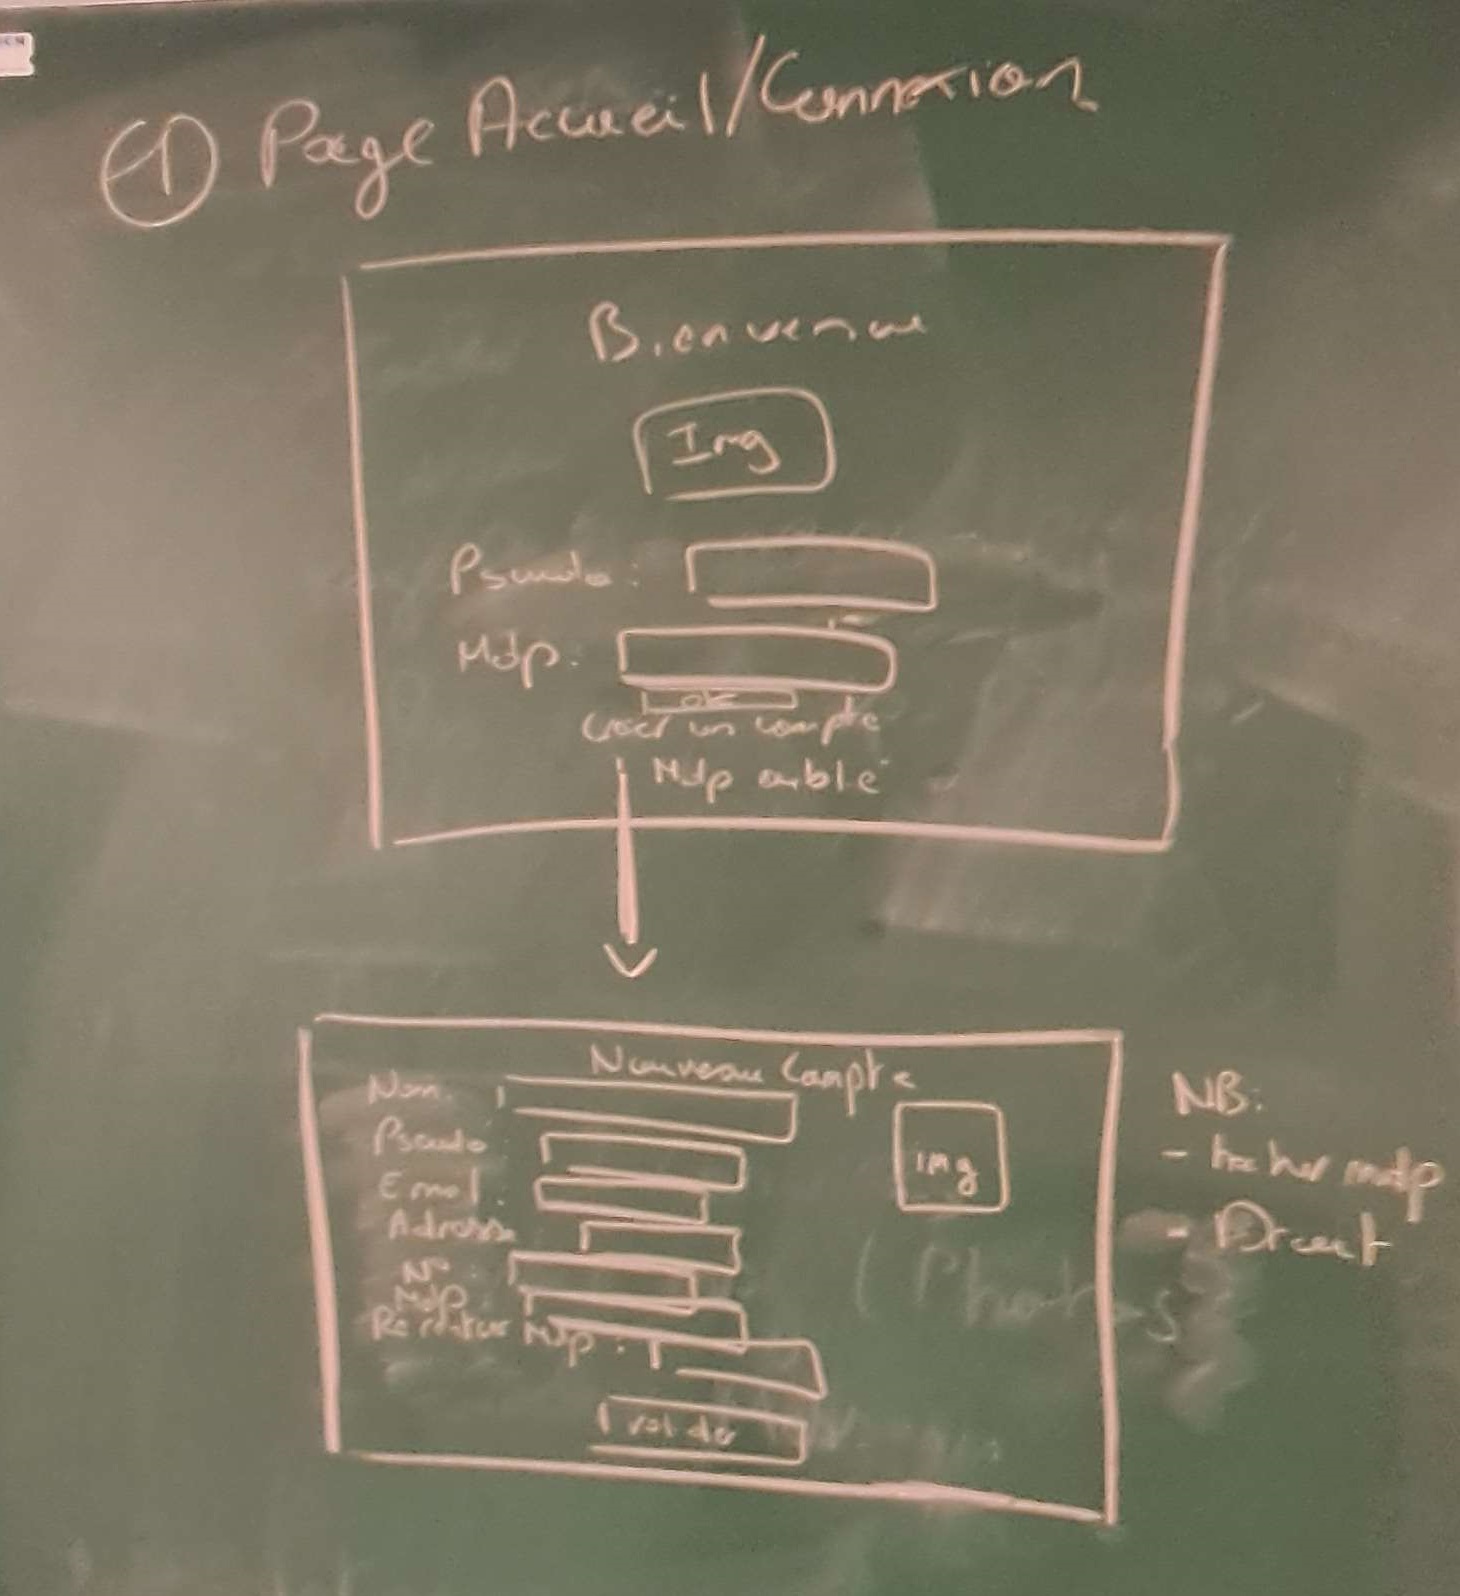 ① Page Accueil/Connexion
Bienvenue
Img
Pseudo :
Mdp :
ok
Créer un compte
Mdp oublié
Nouveau Compte
Nom :
Pseudo
img
Email :
Adresse
N° :
Mdp :
Rérentrer Mdp :
valider
NB :
- hacher mdp
-
(Photos